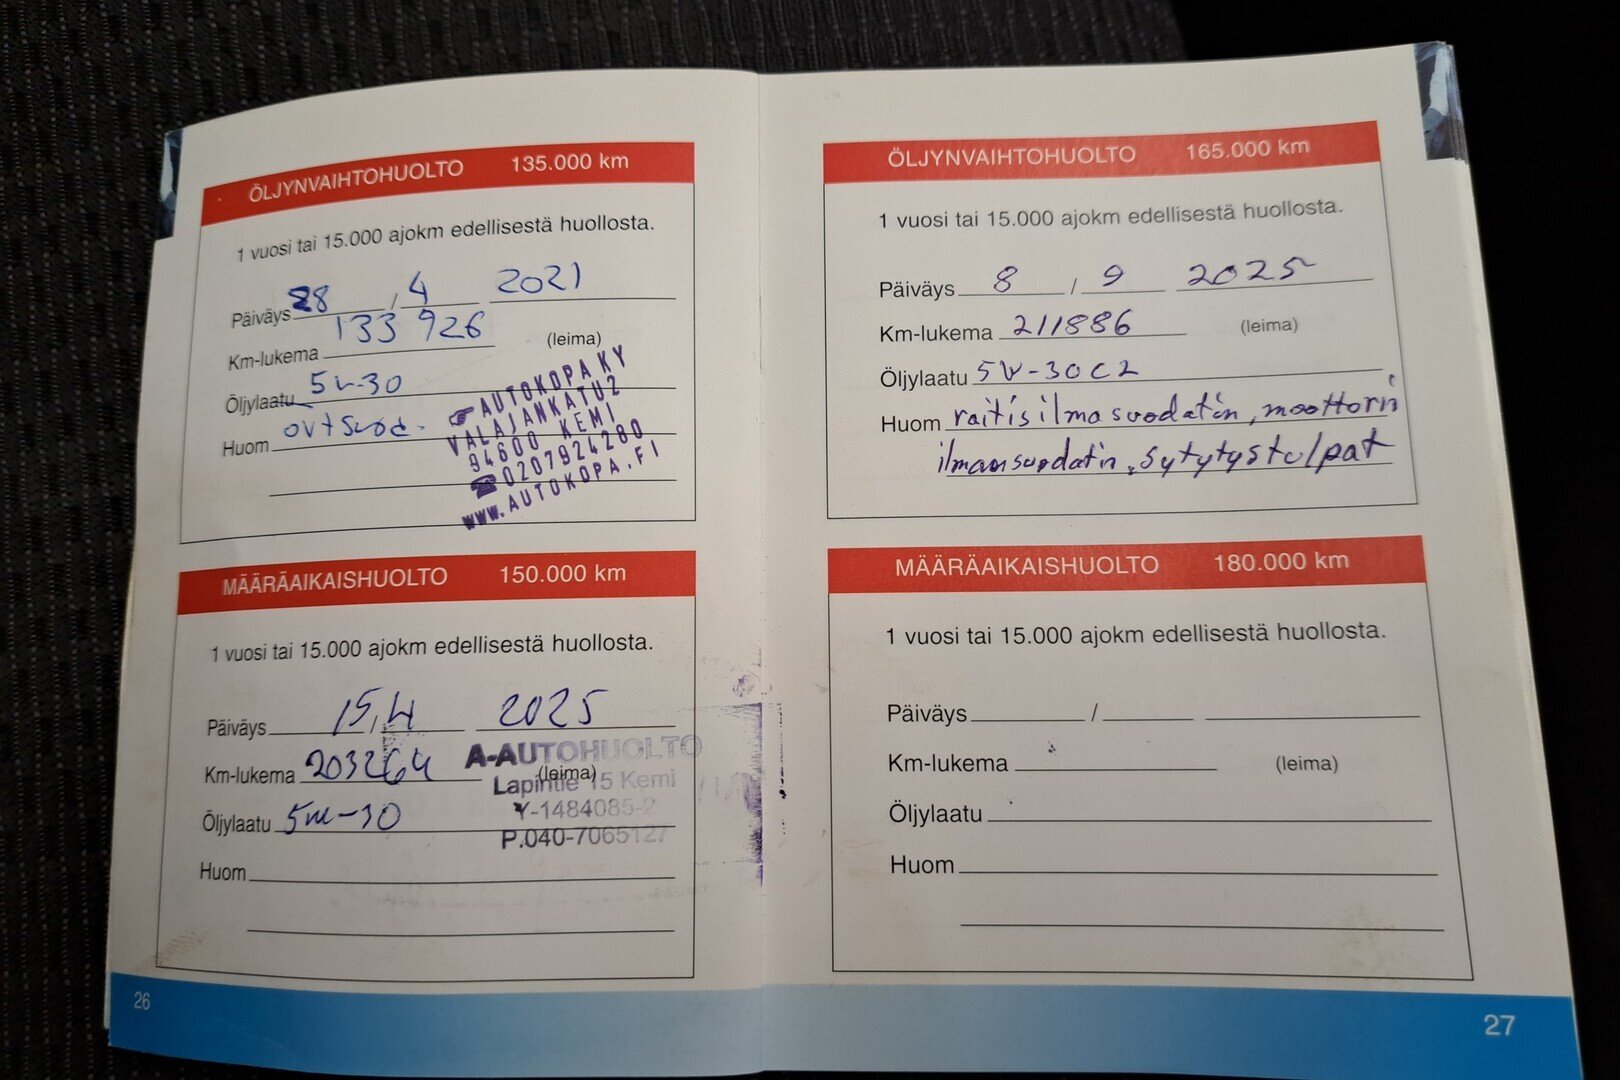 ÖLJYNVAIHTOHUOLTO 135.000 km
1 vuosi tai 15.000 ajokm edellisestä huollosta.
Päiväys 28 / 4 2021
Km-lukema 133 926 (leima)
Öljylaatu 5w-30
Huom ov+suod.
AUTOKOPA KY
VALAJANKATU 2
94600 KEMI
☎0207924280
www.AUTOKOPA.FI
MÄÄRÄAIKAISHUOLTO 150.000 km
1 vuosi tai 15.000 ajokm edellisestä huollosta.
Päiväys 15 / 4 2025
Km-lukema 203264 (leima)
Öljylaatu 5w-30
Huom
A-AUTOHUOLTO
Lapintie 15 Kemi
Y-1484085-2
P.040-7065127
26
ÖLJYNVAIHTOHUOLTO 165.000 km
1 vuosi tai 15.000 ajokm edellisestä huollosta.
Päiväys 8 / 9 2025
Km-lukema 211886 (leima)
Öljylaatu 5W-30 C2
Huom raitisilmasuodatin, moottorin
ilmansuodatin, sytytystulpat
MÄÄRÄAIKAISHUOLTO 180.000 km
1 vuosi tai 15.000 ajokm edellisestä huollosta.
Päiväys /
Km-lukema (leima)
Öljylaatu
Huom
27